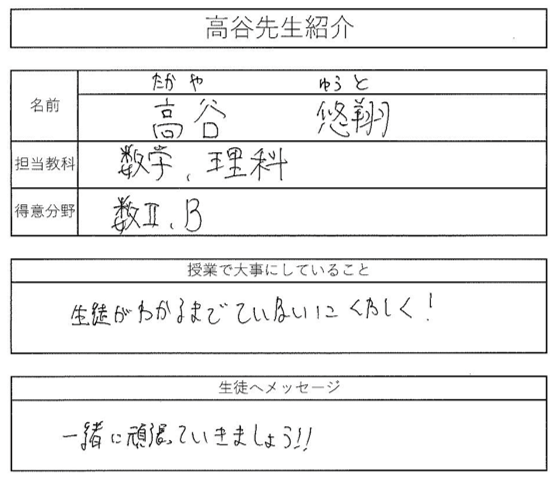 高谷先生紹介
たかや ゆうと
名前 高谷 悠翔
担当教科 数学、理科
得意分野 数Ⅱ、B
授業で大事にしていること
生徒がわかるまでていねいにくわしく!
生徒へメッセージ
一緒に頑張っていきましょう!!